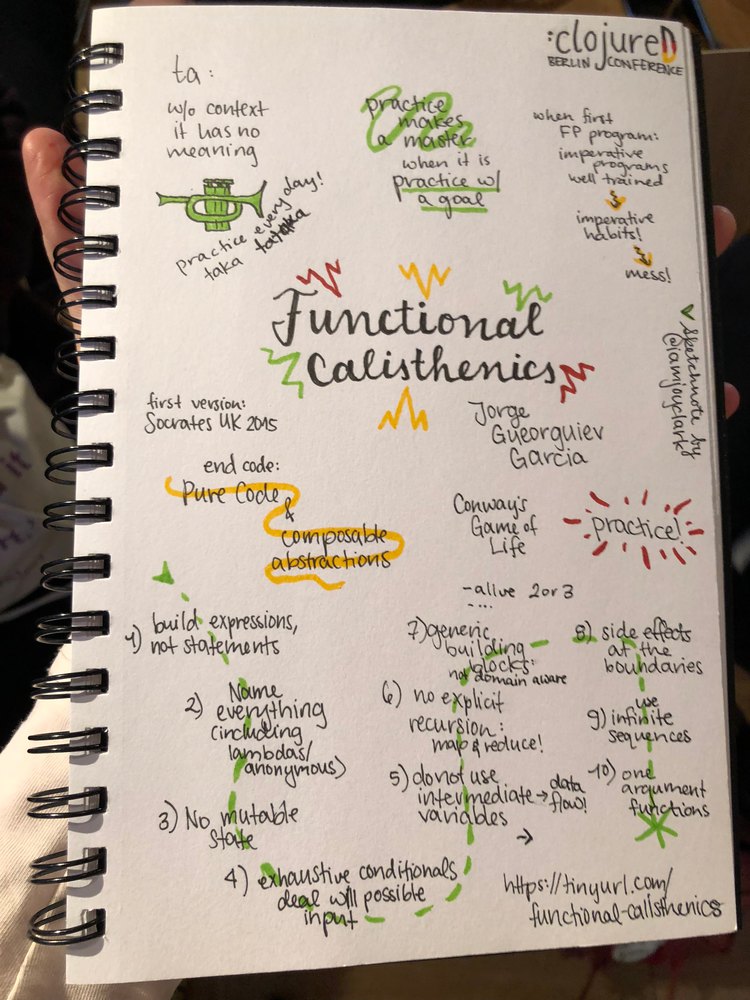 :clojureD
BERLIN CONFERENCE
ta:
w/o context
it has no
meaning
practice every day!
taka tataka
practice
makes
a master
when it is
practice w/
a goal
when first
FP program:
imperative
programs
well trained
imperative
habits!
mess!
Functional
Calisthenics
Jorge
Gueorguiev
Garcia
Sketchnote by
@iamjoyclark
first version:
Socrates UK 2015
end code:
Pure Code
&
composable
abstractions
Conway's
Game of
Life
practice!
-alive 2 or 3
-...
1) build expressions,
not statements
2) Name
everything
(including
lambdas/
anonymous)
3) No mutable
state
4) exhaustive conditionals
deal w/ll possible
input
5) do not use
intermediate → data
variables flow!
→
6) no explicit
recursion:
map & reduce!
7) generic
building
blocks:
not domain aware
8) side effects
at the
boundaries
9) use
infinite
sequences
10) one
argument
functions
https://tinyurl.com/
functional-calisthenics